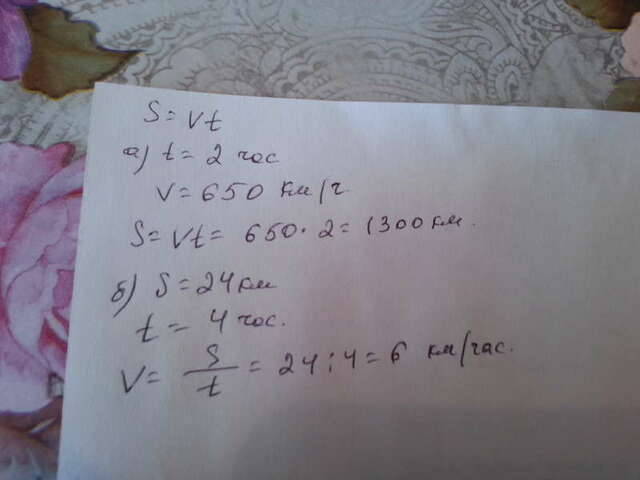 S = Vt
а) t = 2 час
V = 650 км/г
S = Vt = 650 · 2 = 1300 км.
б) S = 24 км
t = 4 час.
V = S/t = 24 : 4 = 6 км/час.